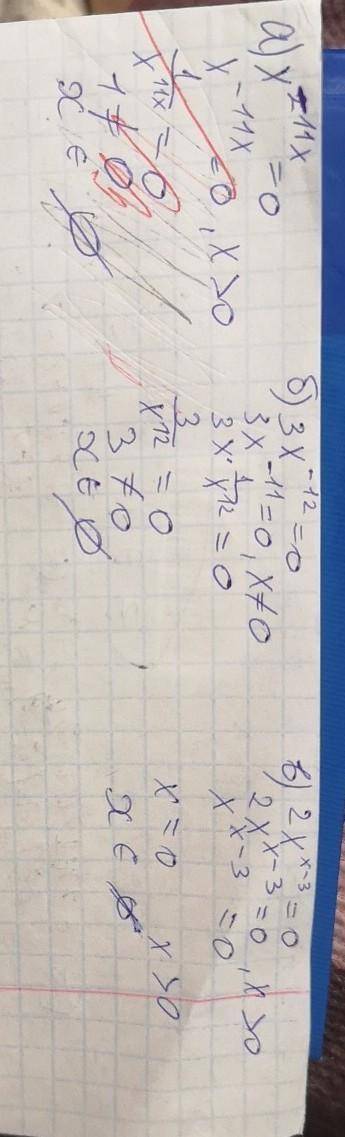 а) x^-11x = 0
x^-11x = 0, x > 0
1/x^11x = 0
1 ≠ 0
x ∈ ∅
б) 3x^-12 = 0
3x^-11 = 0, x ≠ 0
3x · 1/x^12 = 0
3/x^12 = 0
3 ≠ 0
x ∈ ∅
в) 2x^x-3 = 0
2x^x-3 = 0, x > 0
x^x-3 = 0
x = 0 x > 0
x ∈ ∅